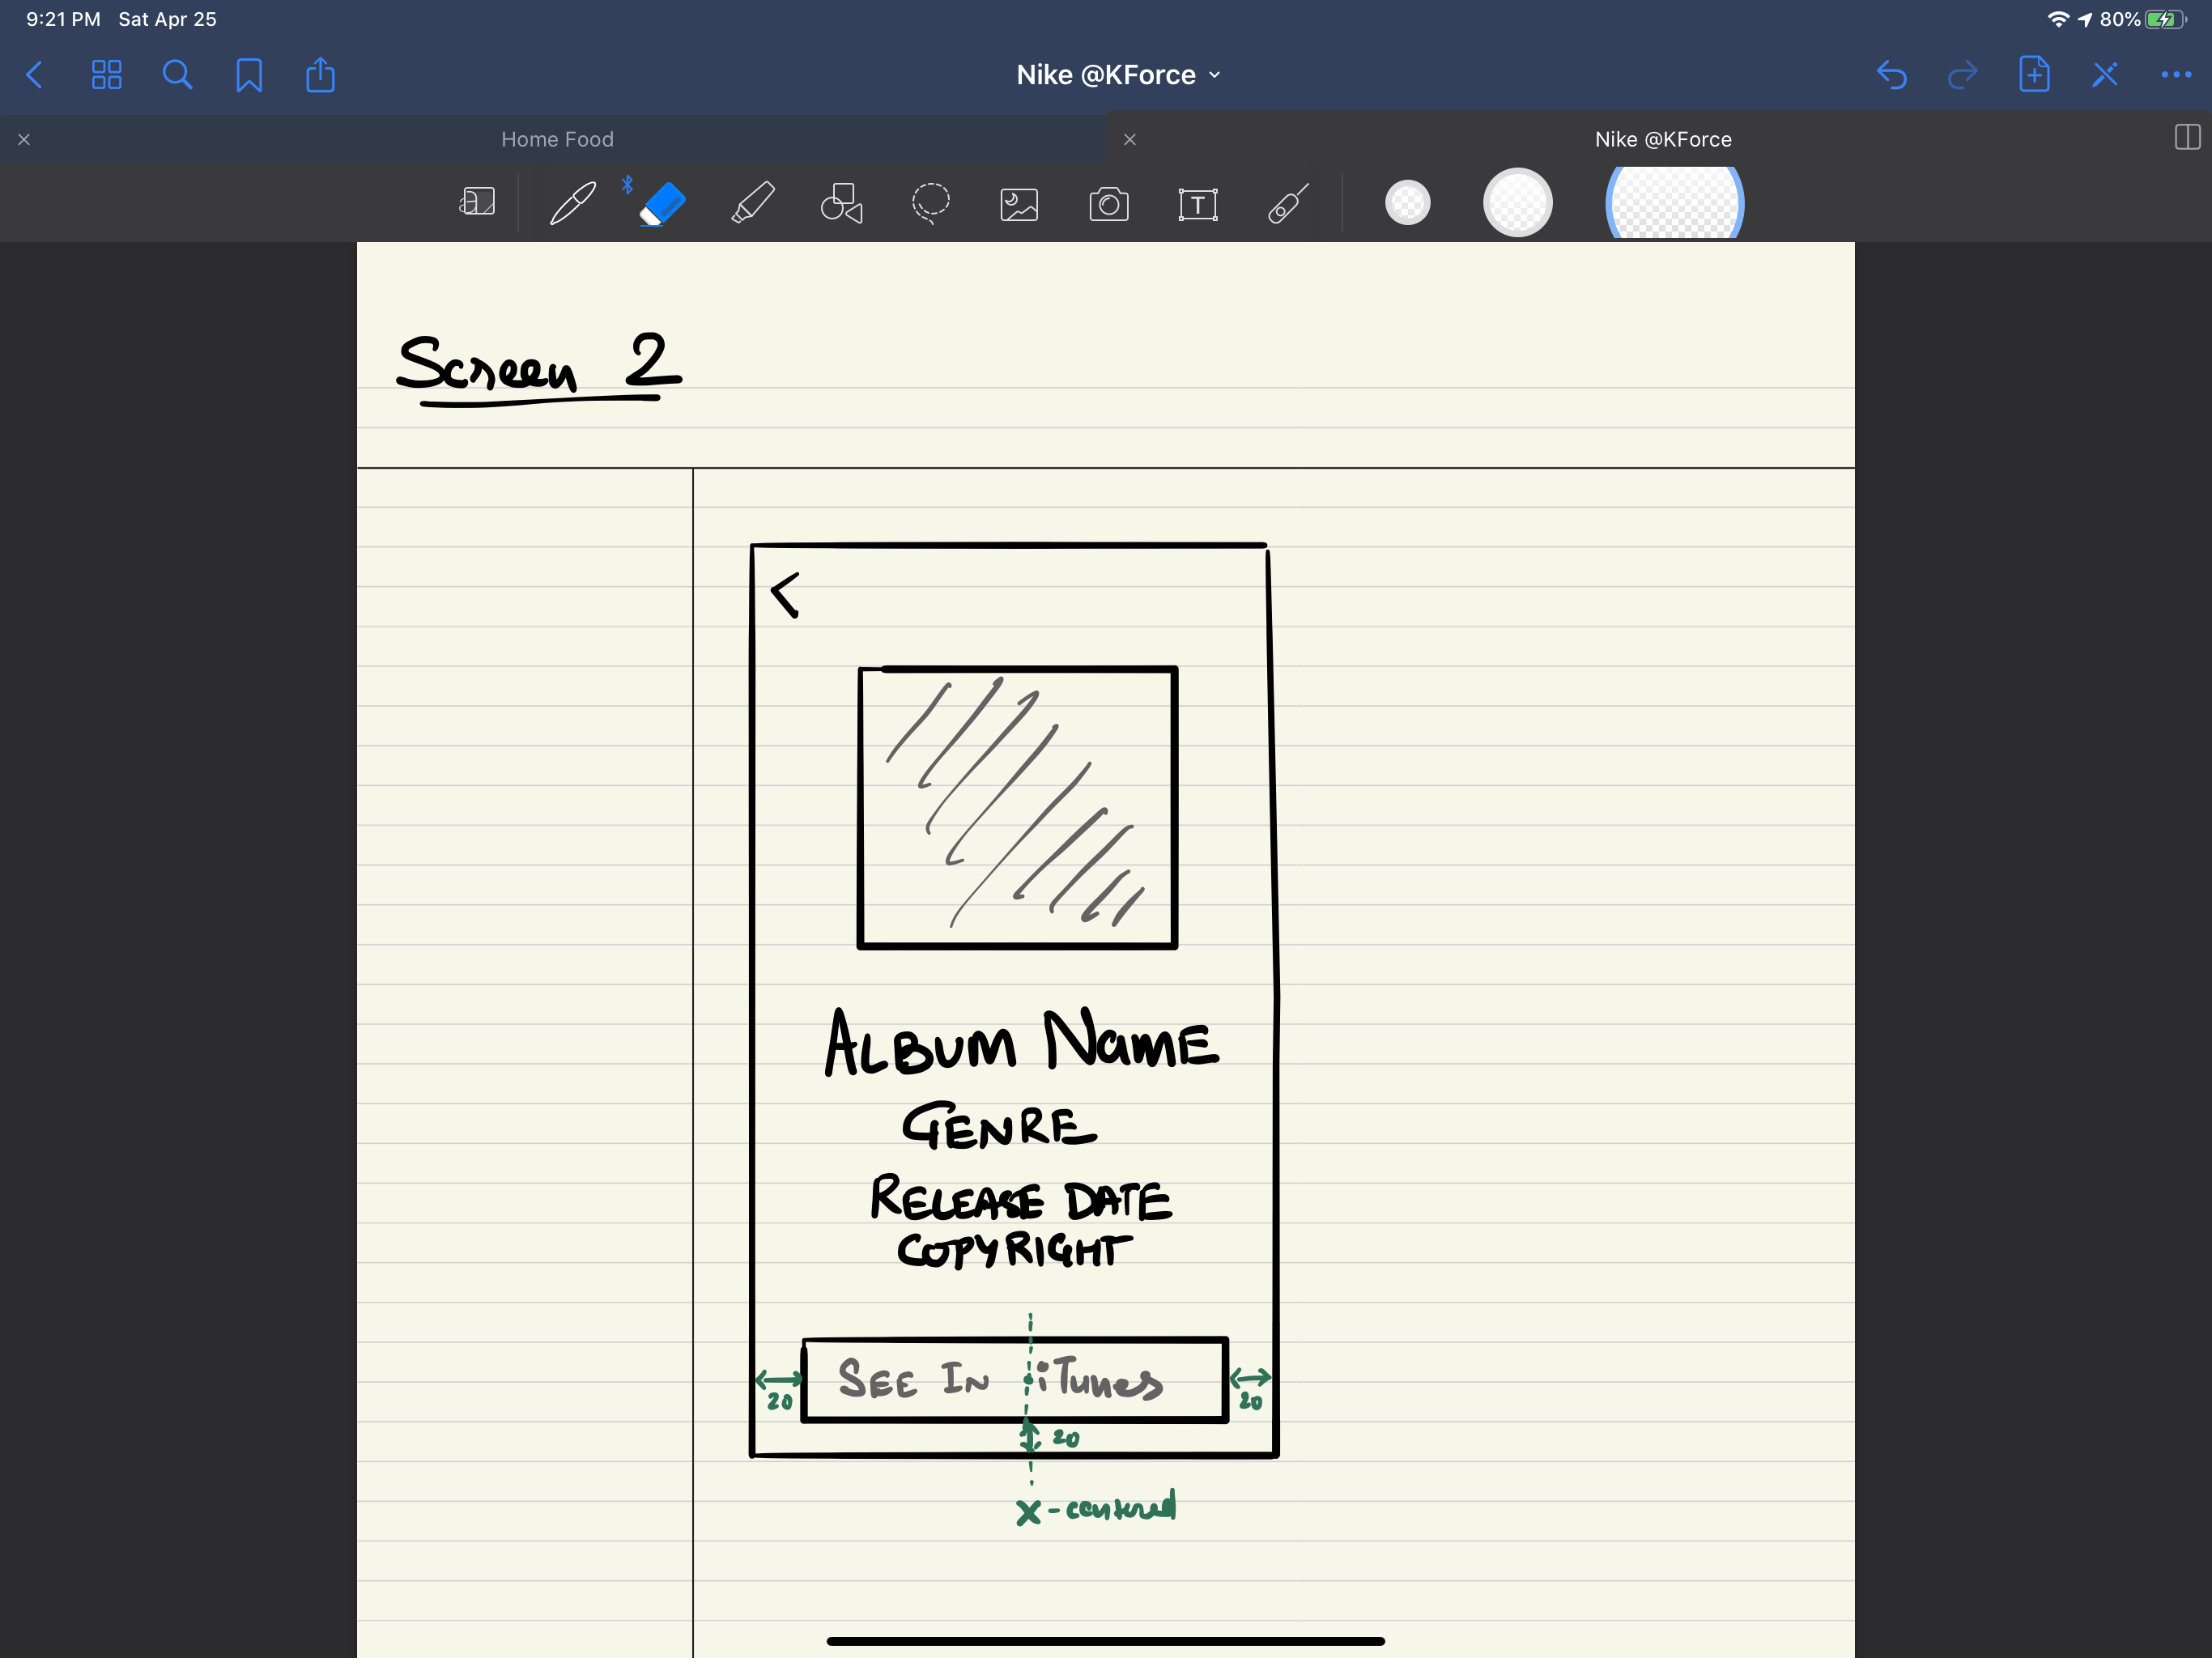 9:21 PM Sat Apr 25 80%
Nike @KForce
Home Food Nike @KForce
T
Screen 2
<
ALBUM NamE
GENRE
RELEASE DATE
COPYRIGHT
SEE IN iTunes
20 20
20
x-centered